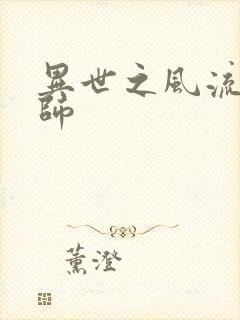 異世之風流
師
薰澄